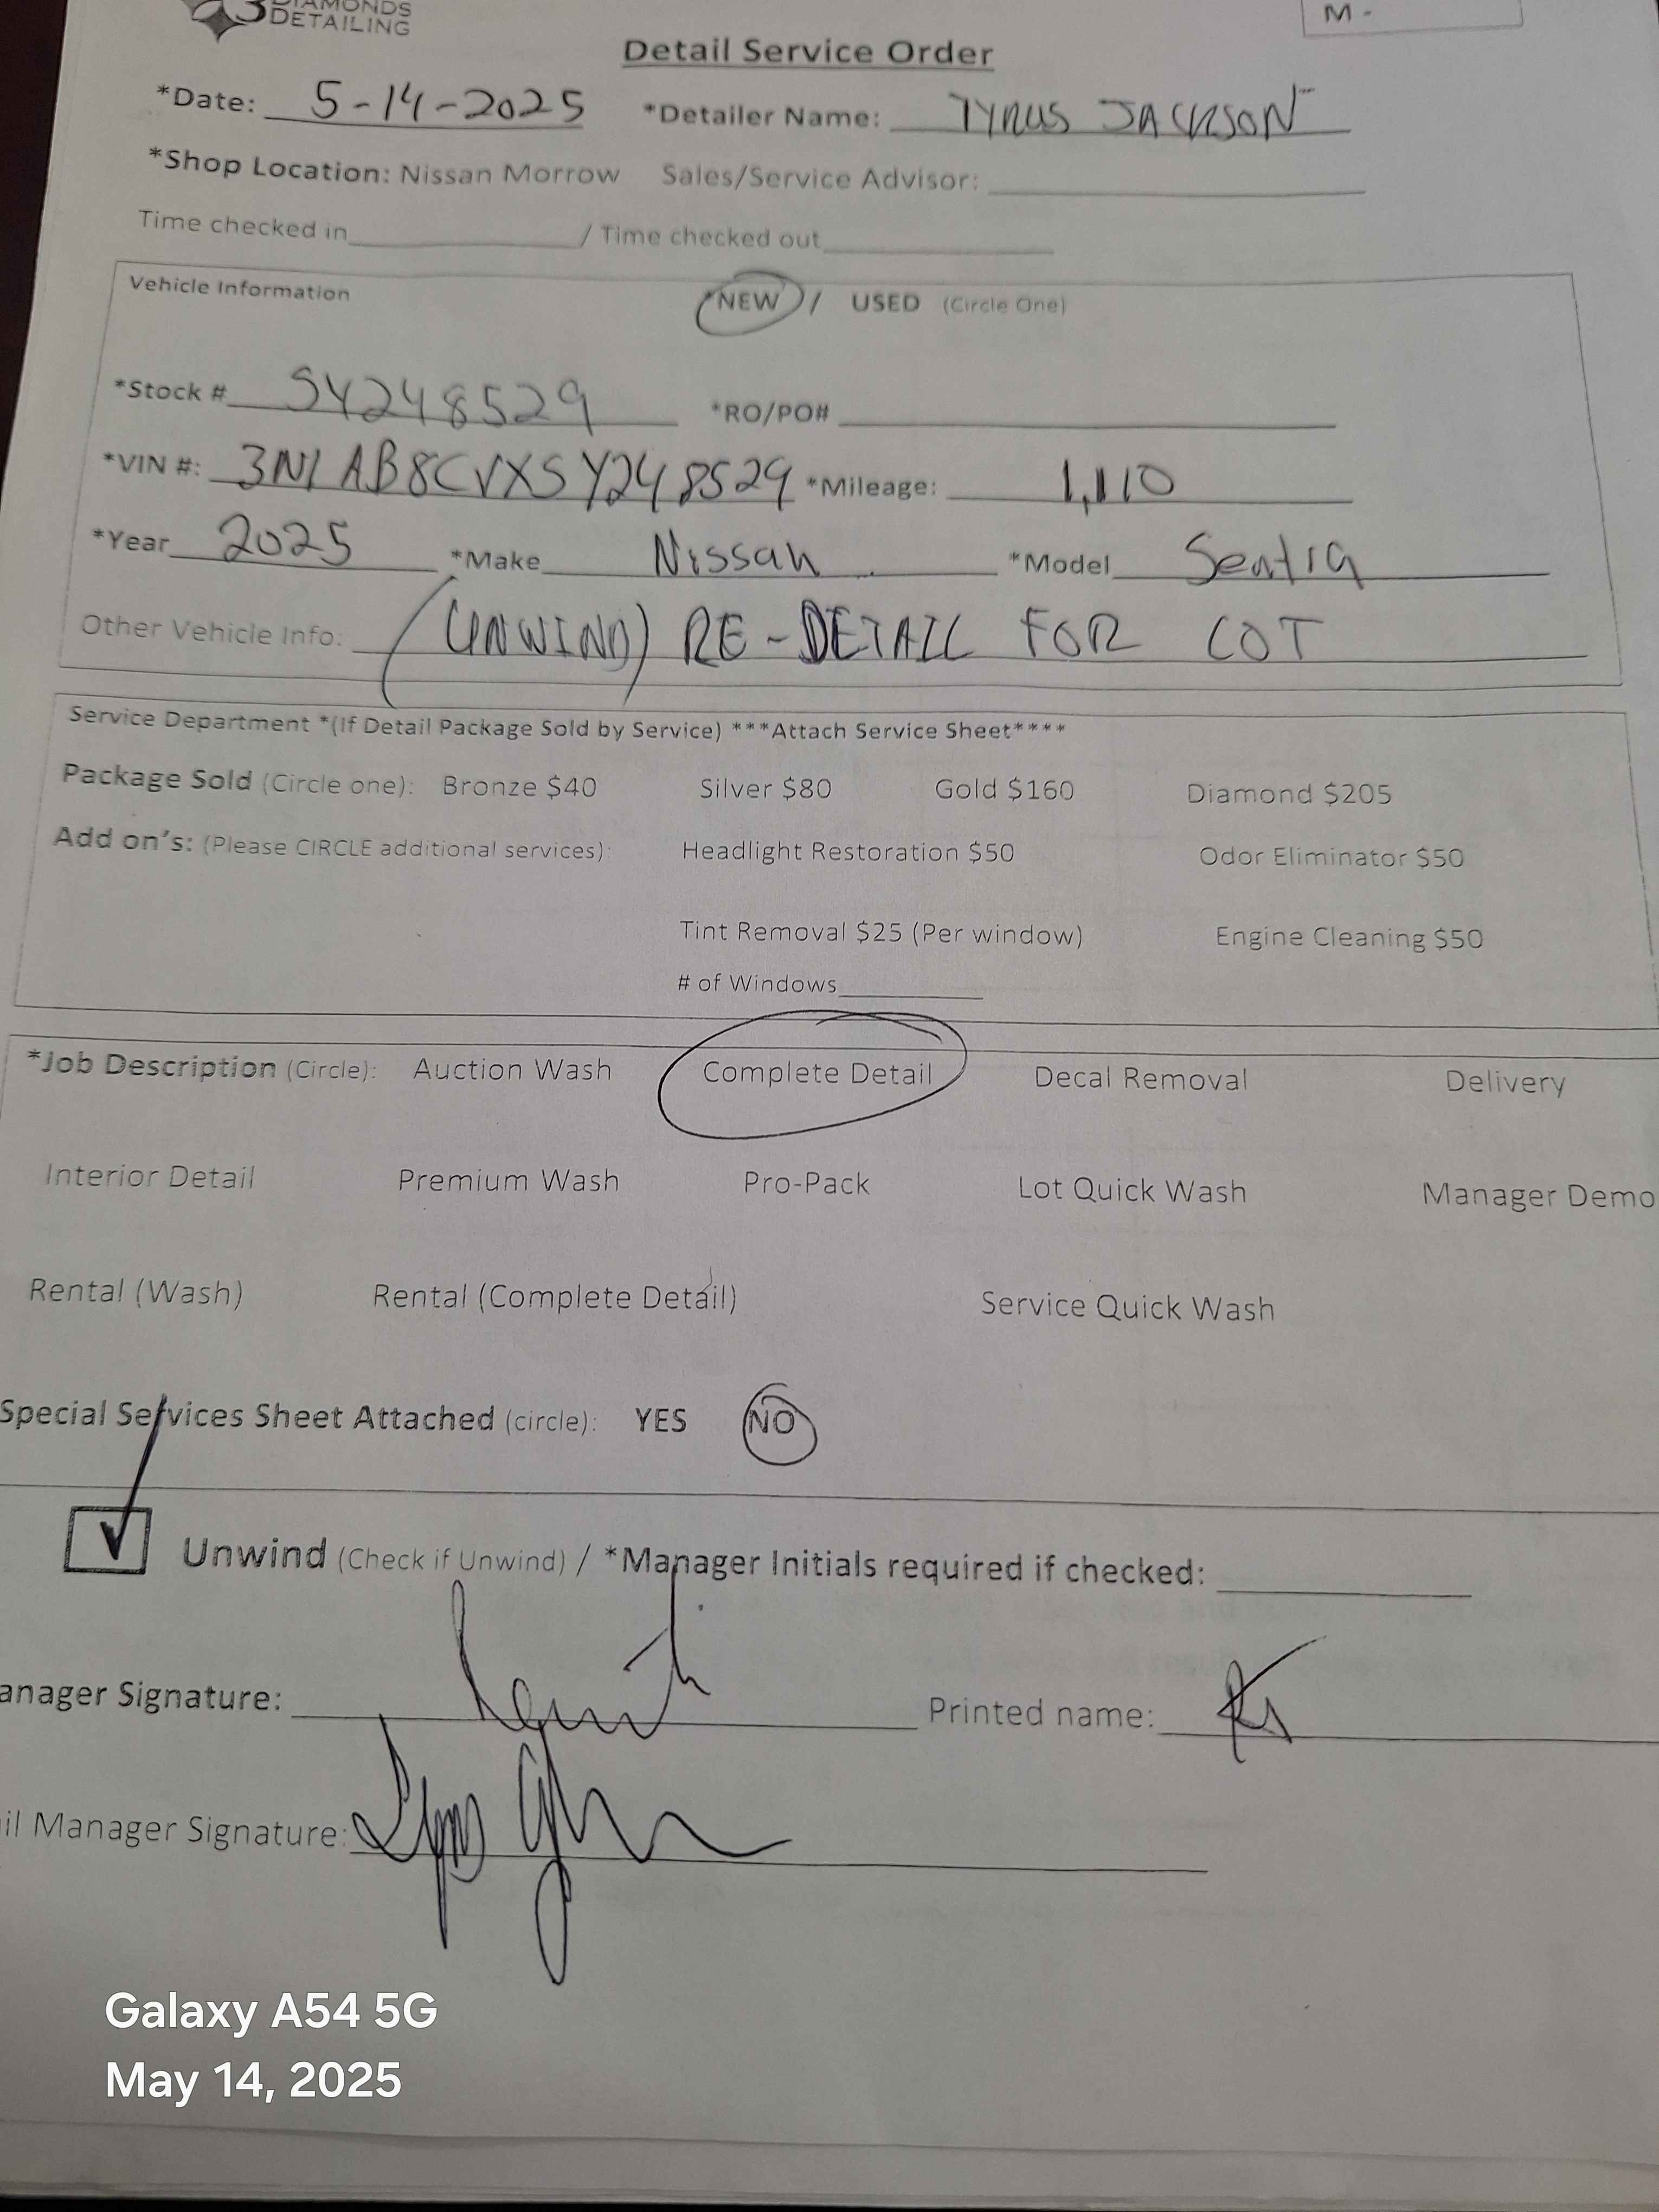 3 DIAMONDS
DETAILING
M -
Detail Service Order
*Date: 5-14-2025 *Detailer Name: TYRUS JACKSON
*Shop Location: Nissan Morrow Sales/Service Advisor:
Time checked in / Time checked out
Vehicle Information *NEW / USED (Circle One)
*Stock # SY248529 *RO/PO#
*VIN #: 3N1AB8CVXSY248529 *Mileage: 1,110
*Year 2025 *Make Nissan *Model Sentra
Other Vehicle Info: (UNWIND) RE-DETAIL FOR LOT
Service Department *(If Detail Package Sold by Service) ***Attach Service Sheet****
Package Sold (Circle one): Bronze $40 Silver $80 Gold $160 Diamond $205
Add on's: (Please CIRCLE additional services): Headlight Restoration $50 Odor Eliminator $50
Tint Removal $25 (Per window) Engine Cleaning $50
# of Windows
*Job Description (Circle): Auction Wash Complete Detail Decal Removal Delivery
Interior Detail Premium Wash Pro-Pack Lot Quick Wash Manager Demo
Rental (Wash) Rental (Complete Detail) Service Quick Wash
Special Services Sheet Attached (circle): YES NO
Unwind (Check if Unwind) / *Manager Initials required if checked:
anager Signature: Printed name:
il Manager Signature:
Galaxy A54 5G
May 14, 2025